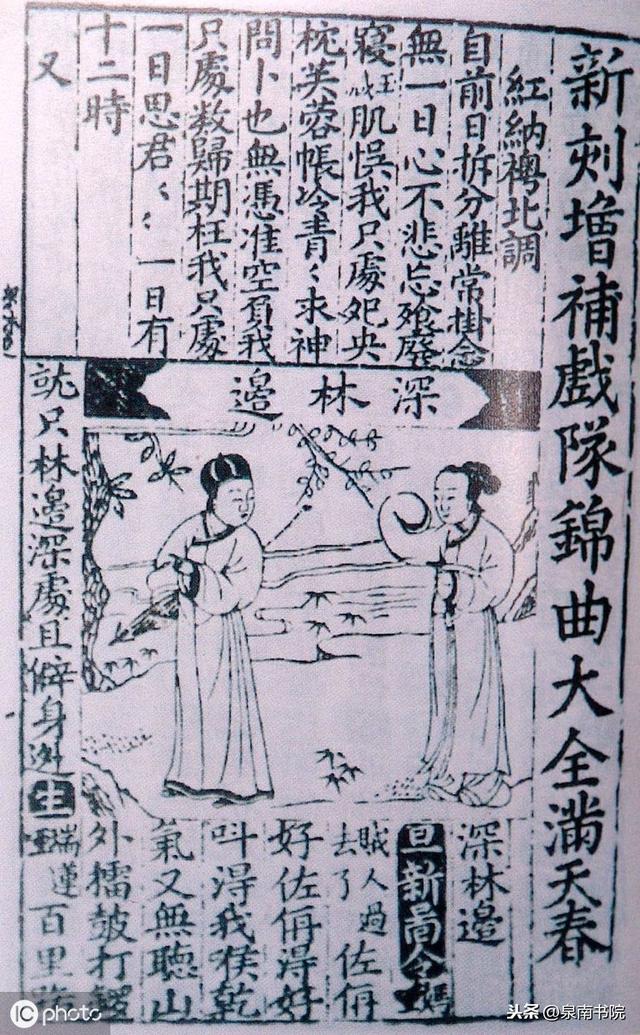 新刻增補戲隊錦曲大全滿天春
紅納襖北調
自前日拆分離常掛念
無一日心不悲忘飡廢
寢 肌悞我只處夗央
枕芙蓉帳冷青〻求神
問卜也無憑准空負我
只處数歸期枉我只處
一日思君〻〻一日有
十二時
又
深林邊
深林邊
旦
賊人過
去了
佐倆
好佐倆得好
呌淂我喉乾
氣又無聽山
外擂皷打
就只林邊深處且僻身
生
百里
iC photo
头条@泉南书院